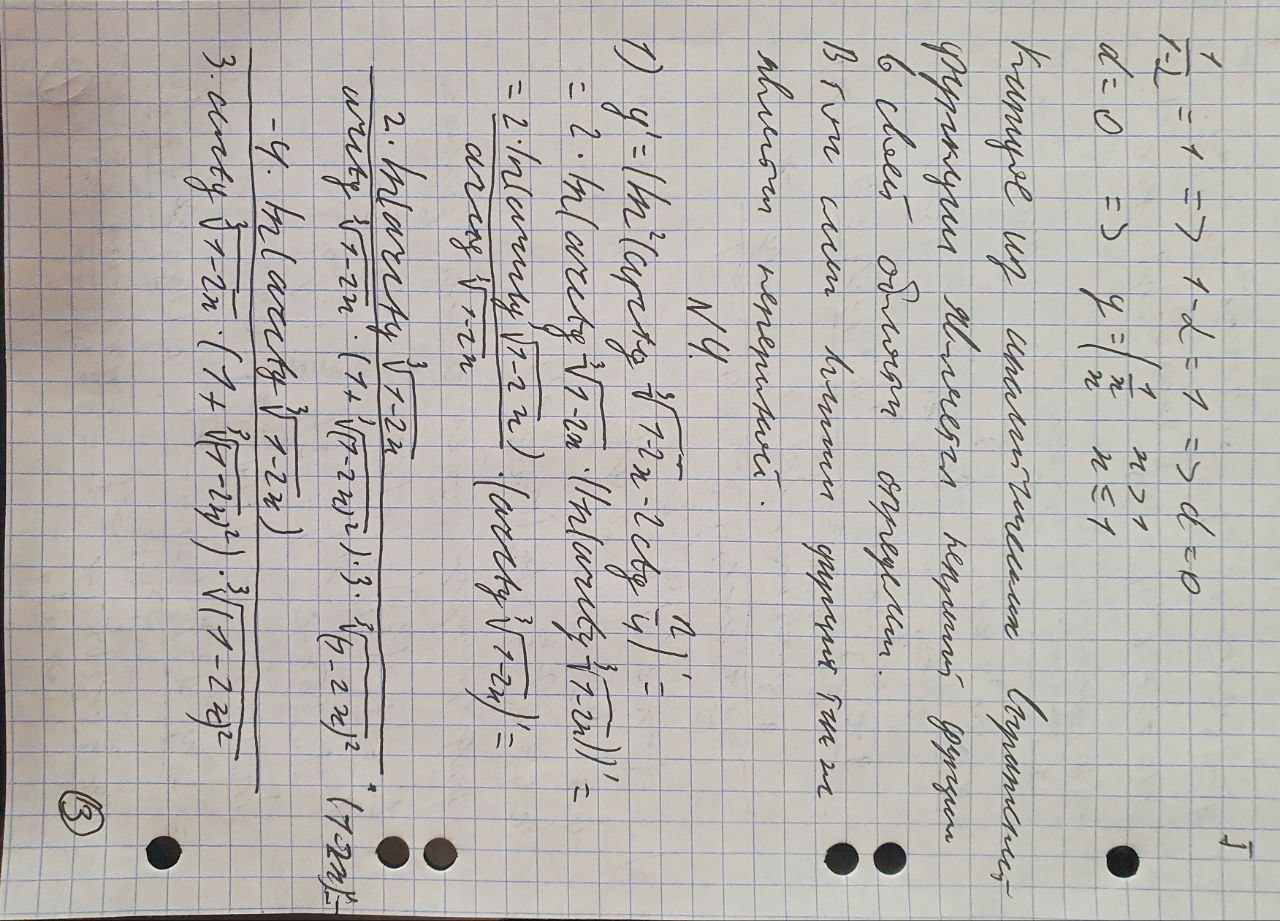 I
1/(1-2) = 1 => 1-α = 1 => α = 0
α = 0 => y = { 1/x x > 1
x x ≤ 1
Каждое из аналитических выражений
функции является непрный функции
в своей области определен.
В том функция также
является непрерывной.
N4.
1) y' = (ln²(arctg ∛(1-2x) - 2 ctg π/4)' =
= 2 · ln(arcctg ∛(1-2x) · (ln(arcctg ∛(1-2x)))' =
= 2·ln(arcctg ∛(1-2x)) / arcctg ∛(1-2x) · (arcctg ∛(1-2x))' =
2 · ln(arcctg ∛(1-2x) / arcctg ∛(1-2x) · (1+∛(1-2x)²) · 3 · ∛(1-2x)² · (1-2x)' =
-4 · ln(arcctg ∛(1-2x)) / 3 · arcctg ∛(1-2x) · (1+∛(1-2x)²) · ∛(1-2x)²
3